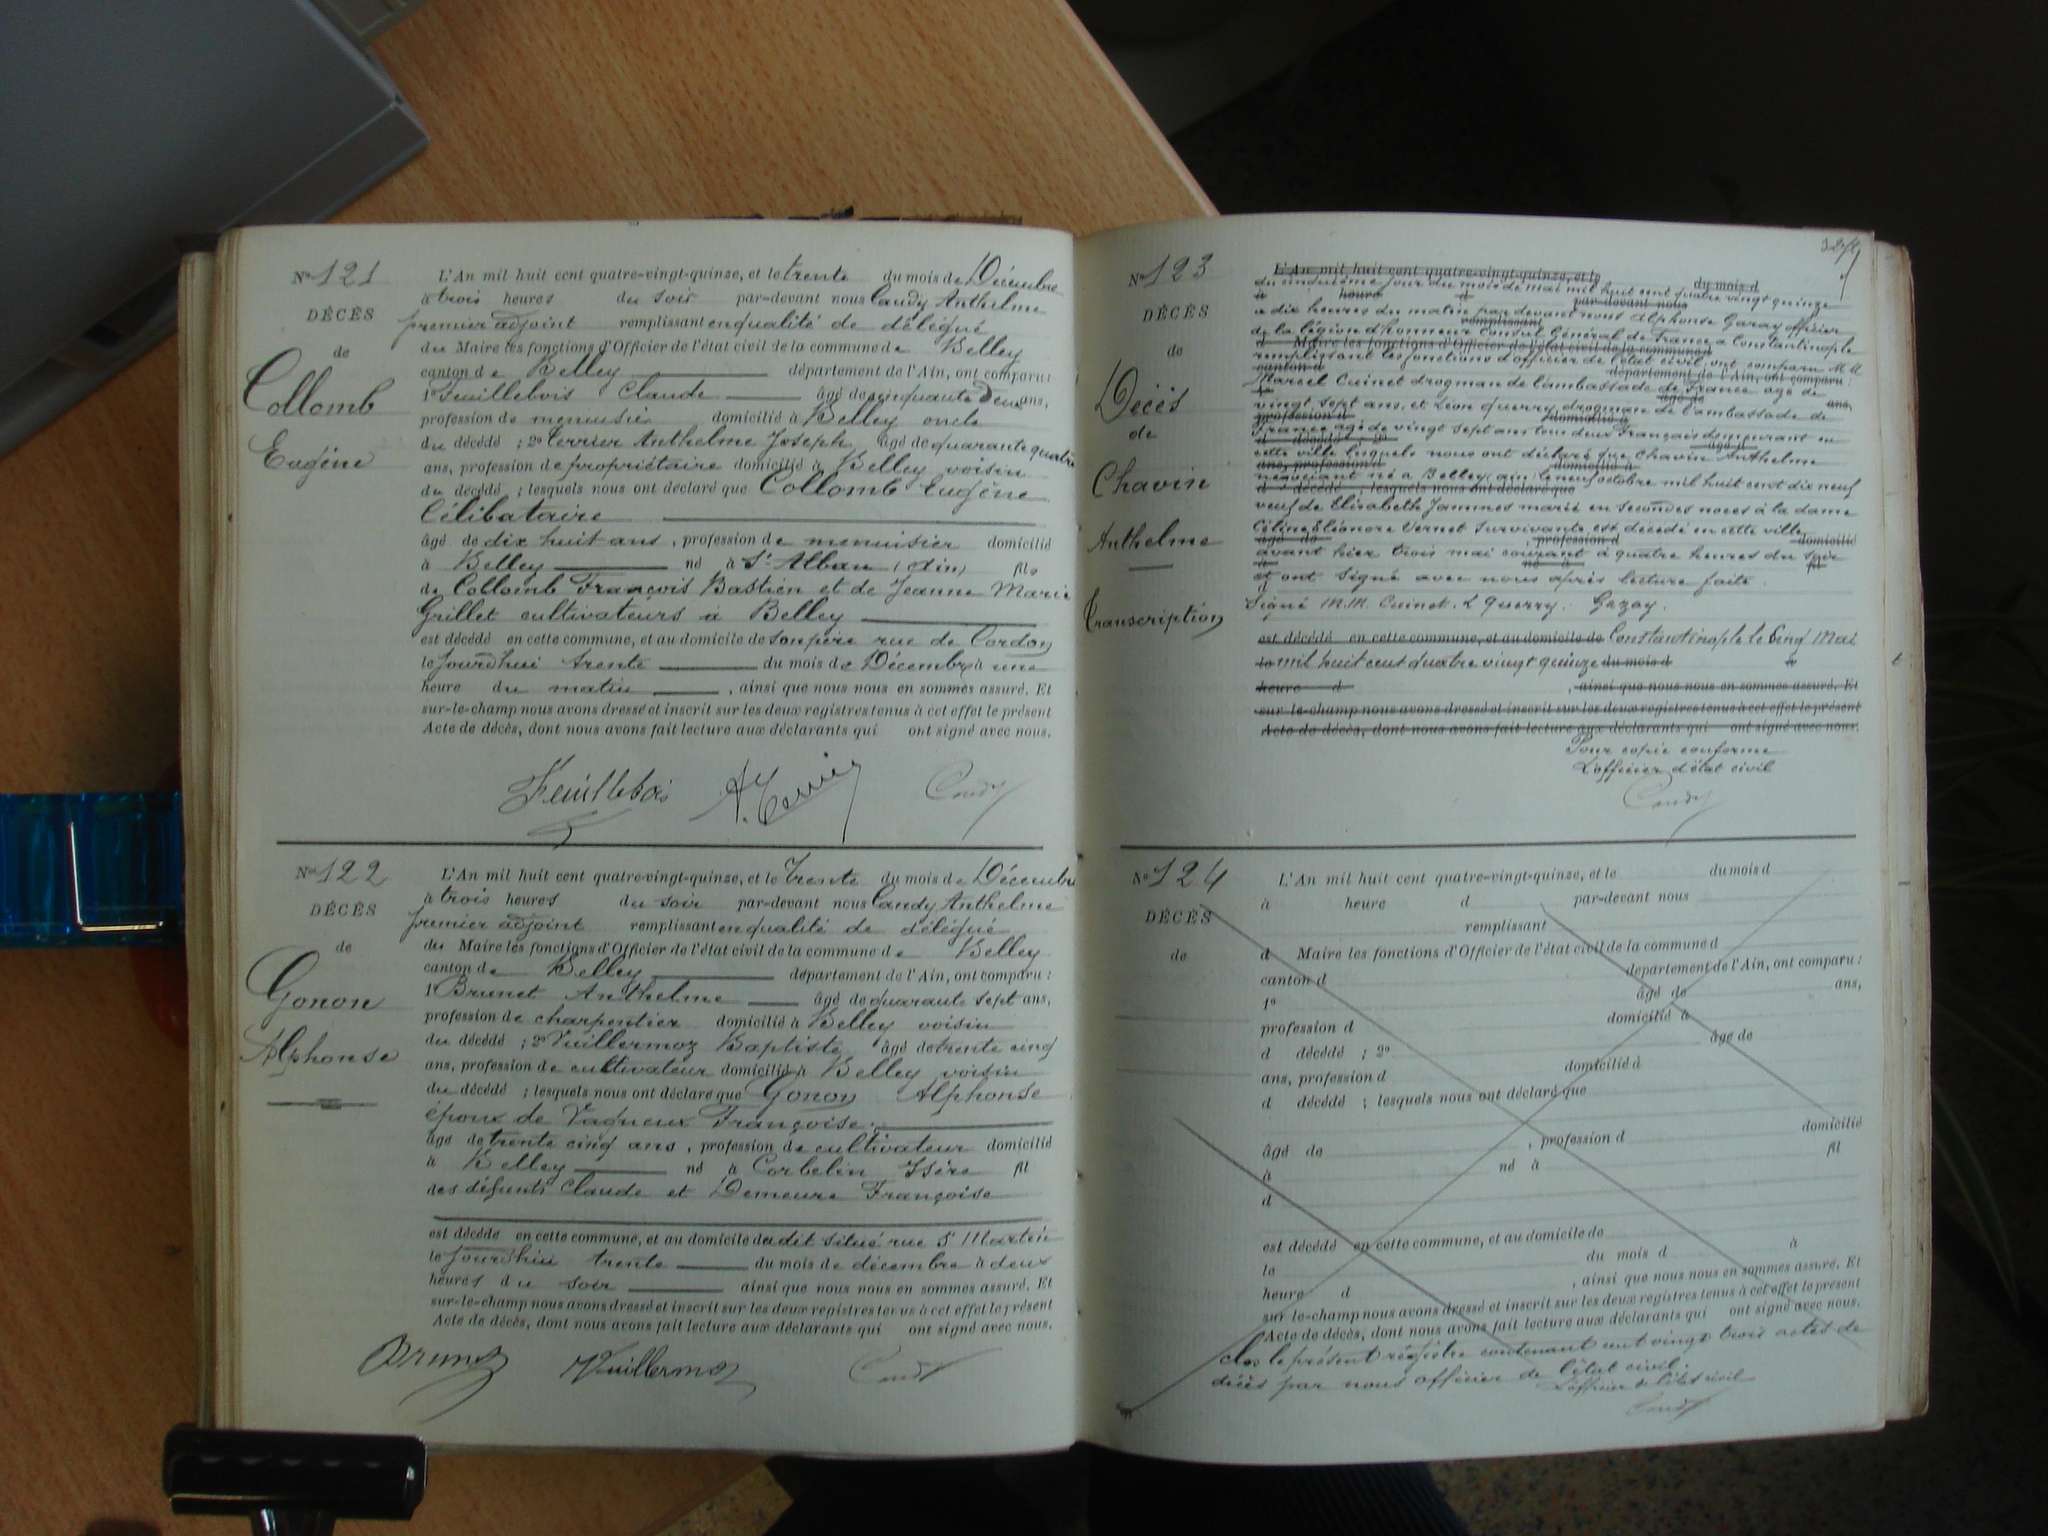 No 121
DÉCÈS
de
Collomb
Eugène
L'An mil huit cent quatre-vingt-quinze, et le trente du mois de Décembre
à trois heures du soir par-devant nous Candy Anthelme
premier adjoint remplissant en qualité de délégué
du Maire les fonctions d'Officier de l'état civil de la commune de Belley
canton de Belley département de l'Ain, ont comparu :
1o Feuillebois Claude âgé de cinquante Deux ans,
profession de menuisier domicilié à Belley oncle
du décédé ; 2o Terrier Anthelme Joseph âgé de quarante quatre
ans, profession de propriétaire domicilié à Belley voisin
du décédé ; lesquels nous ont déclaré que Collomb Eugène
Célibataire
âgé de dix huit ans, profession de menuisier domicilié
à Belley né à St Alban (Ain) fils
de Collomb François Bastien et de Jeanne Marie
Grillet cultivateurs à Belley
est décédé en cette commune, et au domicile de son père rue de Cordon
le jourdhui trente du mois de Décembre à une
heure du matin, ainsi que nous nous en sommes assuré. Et
sur-le-champ nous avons dressé et inscrit sur les deux registres tenus à cet effet le présent
Acte de décès, dont nous avons fait lecture aux déclarants qui ont signé avec nous.
Feuillebois A. Terrier Candy
No 122
DÉCÈS
de
Gonon
Alphonse
L'An mil huit cent quatre-vingt-quinze, et le Trente du mois de Décembre
à trois heures du soir par-devant nous Candy Anthelme
premier adjoint remplissant en qualité de délégué
du Maire les fonctions d'Officier de l'état civil de la commune de Belley
canton de Belley département de l'Ain, ont comparu :
1o Brunet Anthelme âgé de quarante sept ans,
profession de charpentier domicilié à Belley voisin
du décédé ; 2o Vuillermoz Baptiste âgé de trente cinq
ans, profession de cultivateur domicilié à Belley voisin
du décédé ; lesquels nous ont déclaré que Gonon Alphonse
époux de Vaqueux Françoise.
âgé de trente cinq ans, profession de cultivateur domicilié
à Belley né à Corbelin Isère fil
des défunts Claude et Demeure Françoise
est décédé en cette commune, et au domicile du dit situé rue St Martin
le jourdhui trente du mois de décembre à deux
heures du soir ainsi que nous nous en sommes assuré. Et
sur-le-champ nous avons dressé et inscrit sur les deux registres tenus à cet effet le présent
Acte de décès, dont nous avons fait lecture aux déclarants qui ont signé avec nous.
Brunet Vuillermoz Candy
No 123
DÉCÈS
de
Décès
de
Chavin
Anthelme
Transcription
L'An mil huit cent quatre-vingt-quinze, et le du mois d
du cinquième jour du mois de mai mil huit cent quatre vingt quinze
à heure d par-devant nous
a dix heures du matin par devant nous Alphonse Gazay officier
remplissant
de la légion d'honneur Consul Général de France a Constantinople
d Maire les fonctions d'Officier de l'état civil de la commune d
remplissant les fonctions d'officier de l'état civil, ont comparu MM
canton d département de l'Ain, ont comparu :
Marcel Cuinet drogman de l'ambassade de France age de
1o âgé de ans,
vingt sept ans, et Léon Guerry drogman de l'ambassade de
profession d domicilié à
France agé de vingt sept ans tous deux Français demeurant en
d décédé ; 2o âgé d
cette ville lesquels nous ont déclaré que Chavin Anthelme
ans, profession d domicilié à
négociant né a Belley (ain) le neuf octobre mil huit cent dix neuf
d décédé ; lesquels nous ont déclaré que
veuf de Elisabeth Jammes marié en secondes noces à la dame
Céline Eléonore Vernet survivante est décédé en cette ville
âgé de , profession d domicilié
avant hier trois mai courant à quatre heures du soir
à né à fil
et ont signé avec nous après lecture faite.
d
Signé M.M. Cuinet. L Guerry. Gazay.
est décédé en cette commune, et au domicile de Constantinople le Cinq Mai
le mil huit cent quatre vingt quinze du mois d à
heure d , ainsi que nous nous en sommes assuré. Et
sur-le-champ nous avons dressé et inscrit sur les deux registres tenus à cet effet le présent
Acte de décès, dont nous avons fait lecture aux déclarants qui ont signé avec nous.
Pour copie conforme
L'officier d'état civil
Candy
No 124
DÉCÈS
de
L'An mil huit cent quatre-vingt-quinze, et le du mois d
à heure d par-devant nous
remplissant
d Maire les fonctions d'Officier de l'état civil de la commune d
canton d département de l'Ain, ont comparu :
1o âgé de ans,
profession d domicilié à
d décédé ; 2o âge de
ans, profession d domicilié à
d décédé ; lesquels nous ont déclaré que
âgé de , profession d domicilié
à né à fil
d
est décédé en cette commune, et au domicile de
le du mois d à
heure d , ainsi que nous nous en sommes assuré. Et
sur-le-champ nous avons dressé et inscrit sur les deux registres tenus à cet effet le présent
Acte de décès, dont nous avons fait lecture aux déclarants qui ont signé avec nous.
clos le présent régistre contenant cent vingt trois actes de
décès par nous officier de l'état civil.
L'officier de l'état civil
Candy